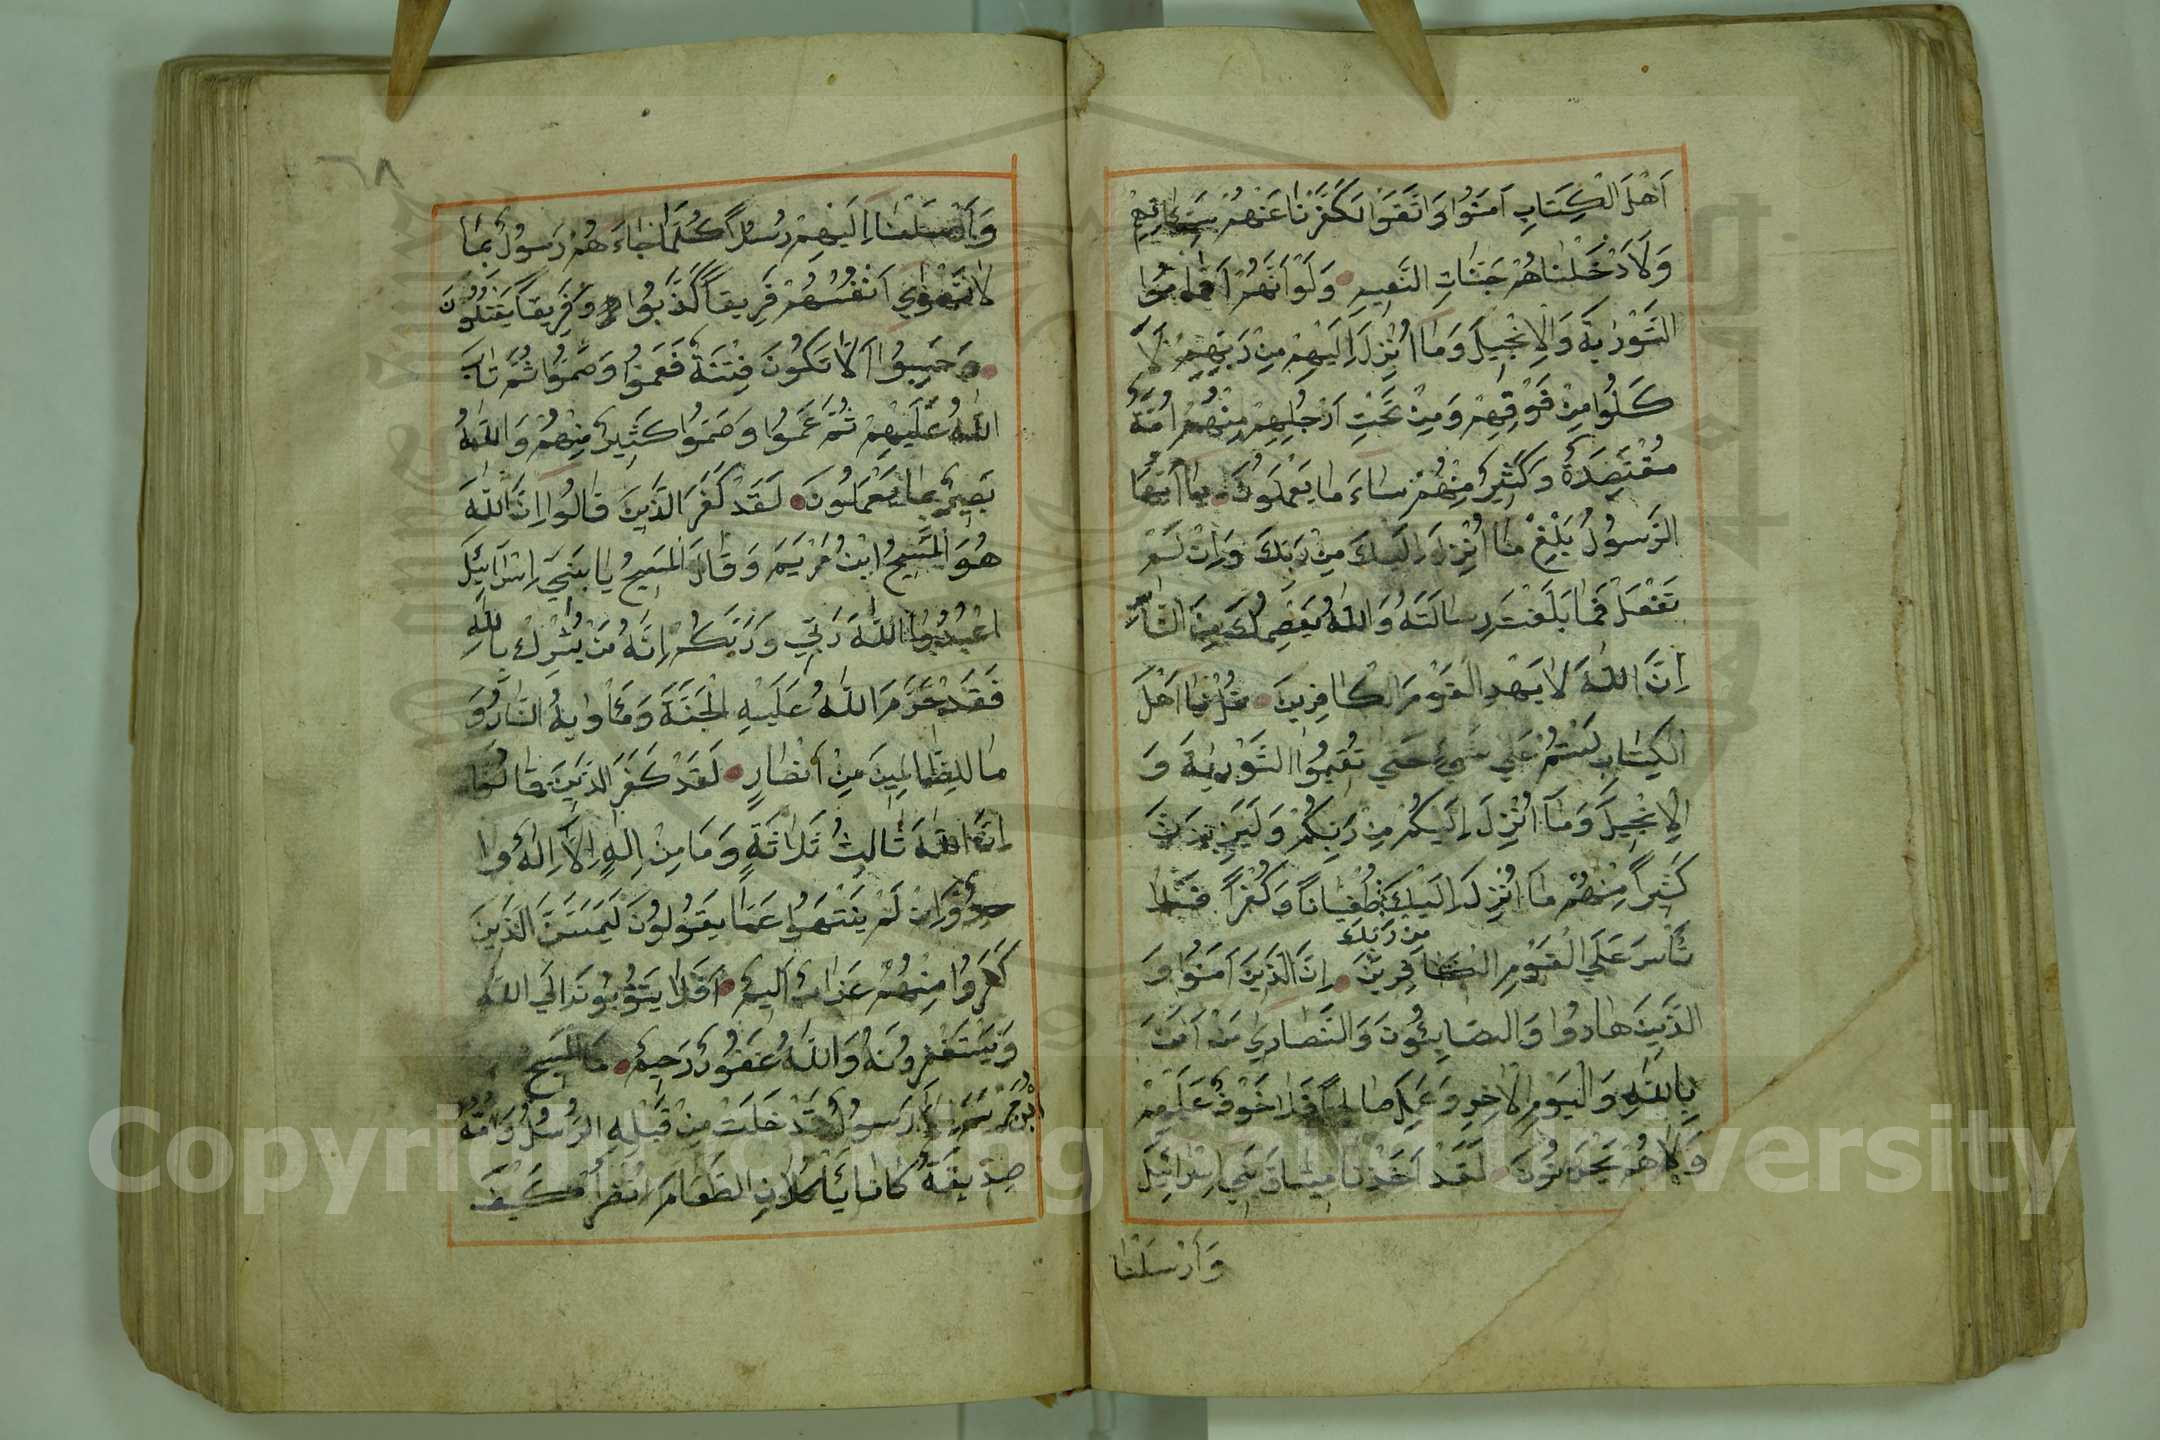 اَهْلَ الْكِتَابِ اٰمَنُوا وَاتَّقَوْا لَكَفَّرْنَا عَنْهُمْ سَيِّئَاتِهِمْ
وَلَاَدْخَلْنَاهُمْ جَنَّاتِ النَّعِيمِ وَلَوْ اَنَّهُمْ اَقَامُوا
التَّوْرٰيةَ وَالْاِنْجِيلَ وَمَا اُنْزِلَ اِلَيْهِمْ مِنْ رَبِّهِمْ لَاَ
كَلُوا مِنْ فَوْقِهِمْ وَمِنْ تَحْتِ اَرْجُلِهِمْ مِنْهُمْ اُمَّةٌ
مُقْتَصِدَةٌ وَكَثِيرٌ مِنْهُمْ سَاءَ مَا يَعْمَلُونَ يَا اَيُّهَا
الرَّسُولُ بَلِّغْ مَا اُنْزِلَ اِلَيْكَ مِنْ رَبِّكَ وَاِنْ لَمْ
تَفْعَلْ فَمَا بَلَّغْتَ رِسَالَتَهُ وَاللّٰهُ يَعْصِمُكَ مِنَ النَّاسِ
اِنَّ اللّٰهَ لَا يَهْدِ الْقَوْمَ الْكَافِرِينَ قُلْ يَا اَهْلَ
الْكِتَابِ لَسْتُمْ عَلٰي شَيْءٍ حَتّٰي تُقِيمُوا التَّوْرٰيةَ وَ
الْاِنْجِيلَ وَمَا اُنْزِلَ اِلَيْكُمْ مِنْ رَبِّكُمْ وَلَيَزِيدَنَّ
كَثِيراً مِنْهُمْ مَا اُنْزِلَ اِلَيْكَ طُغْيَاناً وَكُفْراً فَلَا
من رَبِّكَ
تَأْسَ عَلَي الْقَوْمِ الْكَافِرِينَ اِنَّ الَّذِينَ اٰمَنُوا وَ
الَّذِينَ هَادُوا وَالصَّابِئُونَ وَالنَّصَارٰي مَنْ اٰمَنَ
بِاللّٰهِ وَالْيَوْمِ الْاٰخِرِ وَعَمِلَ صَالِحاً فَلَا خَوْفٌ عَلَيْهِمْ
وَلَا هُمْ يَحْزَنُونَ لَقَدْ اَخَذْنَا مِيثَاقَ بَنِي اِسْرَائِيلَ
وَاَرْسَلْنَا
٦٨
وَاَرْسَلْنَا اِلَيْهِمْ رُسُلاً كُلَّمَا جَاءَهُمْ رَسُولٌ بِمَا
لَا تَهْوٰي اَنْفُسُهُمْ فَرِيقاً كَذَّبُوا وَفَرِيقاً يَقْتُلُونَ
وَحَسِبُوا اَلَّا تَكُونَ فِتْنَةٌ فَعَمُوا وَصَمُّوا ثُمَّ تَابَ
اللّٰهُ عَلَيْهِمْ ثُمَّ عَمُوا وَصَمُّوا كَثِيرٌ مِنْهُمْ وَاللّٰهُ
بَصِيرٌ بِمَا يَعْمَلُونَ لَقَدْ كَفَرَ الَّذِينَ قَالُوا اِنَّ اللّٰهَ
هُوَ الْمَسِيحُ ابْنُ مَرْيَمَ وَقَالَ الْمَسِيحُ يَا بَنِي اِسْرَائِيلَ
اعْبُدُوا اللّٰهَ رَبِّي وَرَبَّكُمْ اِنَّهُ مَنْ يُشْرِكْ بِاللّٰهِ
فَقَدْ حَرَّمَ اللّٰهُ عَلَيْهِ الْجَنَّةَ وَمَأْوٰيهُ النَّارُ وَ
مَا لِلظَّالِمِينَ مِنْ اَنْصَارٍ لَقَدْ كَفَرَ الَّذِينَ قَالُوا
اِنَّ اللّٰهَ ثَالِثُ ثَلَاثَةٍ وَمَا مِنْ اِلٰهٍ اِلَّا اِلٰهٌ وَا
حِدٌ وَاِنْ لَمْ يَنْتَهُوا عَمَّا يَقُولُونَ لَيَمَسَّنَّ الَّذِينَ
كَفَرُوا مِنْهُمْ عَذَابٌ اَلِيمٌ اَفَلَا يَتُوبُونَ اِلَي اللّٰهِ
وَيَسْتَغْفِرُونَهُ وَاللّٰهُ غَفُورٌ رَحِيمٌ مَا الْمَسِيحُ
ابْنُ مَرْيَمَ اِلَّا رَسُولٌ قَدْ خَلَتْ مِنْ قَبْلِهِ الرُّسُلُ وَاُمُّهُ
صِدِّيقَةٌ كَانَا يَأْكُلَانِ الطَّعَامَ اُنْظُرْ كَيْفَ
Copyright © King Saud University